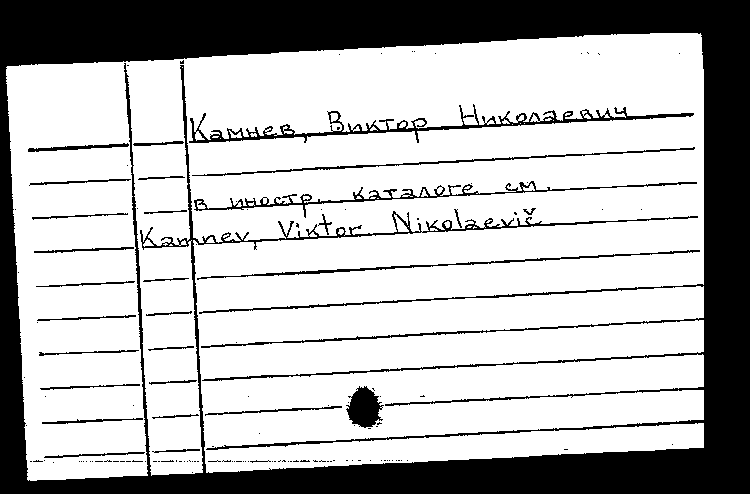 Камнев, Виктор Николаевич
в иностр. каталоге см.
Kamnev, Viktor Nikolaevič